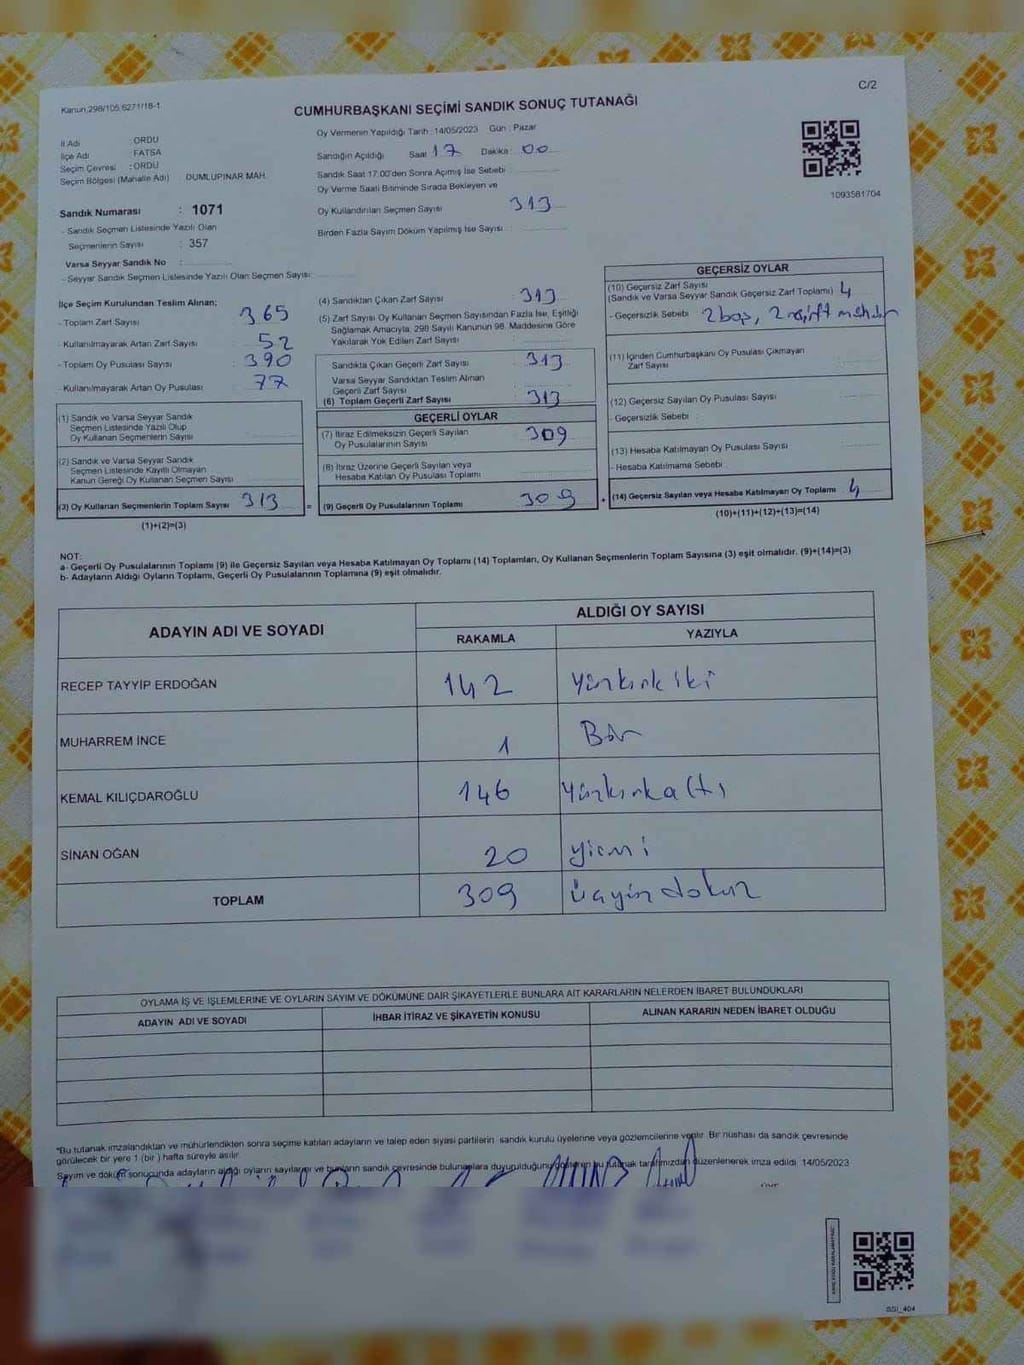 C/2
Kanun,298/105,6271/18-1
CUMHURBAŞKANI SEÇİMİ SANDIK SONUÇ TUTANAĞI
İl Adı : ORDU
İlçe Adı : FATSA
Seçim Çevresi : ORDU
Seçim Bölgesi (Mahalle Adı) DUMLUPINAR MAH.
Oy Vermenin Yapıldığı Tarih : 14/05/2023 Gün : Pazar
Sandığın Açıldığı Saat 17 Dakika : 00
Sandık Saat 17:00'den Sonra Açımış İse Sebebi
Oy Verme Saati Bitiminde Sırada Bekleyen ve
Oy Kullandırılan Seçmen Sayısı 313
Birden Fazla Sayım Döküm Yapılmış İse Sayısı :
1093581704
Sandık Numarası : 1071
- Sandık Seçmen Listesinde Yazılı Olan
Seçmenlerin Sayısı : 357
Varsa Seyyar Sandık No :
- Seyyar Sandık Seçmen Listesinde Yazılı Olan Seçmen Sayısı:
İlçe Seçim Kurulundan Teslim Alınan;
- Toplam Zarf Sayısı : 365
- Kullanılmayarak Artan Zarf Sayısı : 52
- Toplam Oy Pusulası Sayısı : 390
- Kullanılmayarak Artan Oy Pusulası : 77
(1) Sandık ve Varsa Seyyar Sandık
Seçmen Listesinde Yazılı Olup
Oy Kullanan Seçmenlerin Sayısı
(2) Sandık ve Varsa Seyyar Sandık
Seçmen Listesinde Kayıtlı Olmayan
Kanun Gereği Oy Kullanan Seçmen Sayısı
(3) Oy Kullanan Seçmenlerin Toplam Sayısı 313
(1)+(2)=(3)
(4) Sandıktan Çıkan Zarf Sayısı : 313
(5) Zarf Sayısı Oy Kullanan Seçmen Sayısından Fazla İse, Eşitliği
Sağlamak Amacıyla, 298 Sayılı Kanunun 98. Maddesine Göre
Yakılarak Yok Edilen Zarf Sayısı
Sandıkta Çıkan Geçerli Zarf Sayısı : 313
Varsa Seyyar Sandıktan Teslim Alınan
Geçerli Zarf Sayısı
(6) Toplam Geçerli Zarf Sayısı : 313
GEÇERLİ OYLAR
(7) İtiraz Edilmeksizin Geçerli Sayılan
Oy Pusulalarının Sayısı 309
(8) İtiraz Üzerine Geçerli Sayılan veya
Hesaba Katılan Oy Pusulası Toplamı
=
(9) Geçerli Oy Pusulalarının Toplamı 309
+
GEÇERSİZ OYLAR
(10) Geçersiz Zarf Sayısı
(Sandık ve Varsa Seyyar Sandık Geçersiz Zarf Toplamı) 4
- Geçersizlik Sebebi : 2 boş, 2 çift mühür
(11) İçinden Cumhurbaşkanı Oy Pusulası Çıkmayan
Zarf Sayısı
(12) Geçersiz Sayılan Oy Pusulası Sayısı
- Geçersizlik Sebebi :
(13) Hesaba Katılmayan Oy Pusulası Sayısı
- Hesaba Katılmama Sebebi :
(14) Geçersiz Sayılan veya Hesaba Katılmayan Oy Toplamı 4
(10)+(11)+(12)+(13)=(14)
NOT:
a- Geçerli Oy Pusulalarının Toplamı (9) ile Geçersiz Sayılan veya Hesaba Katılmayan Oy Toplamı (14) Toplamları, Oy Kullanan Seçmenlerin Toplam Sayısına (3) eşit olmalıdır. (9)+(14)=(3)
b- Adayların Aldığı Oyların Toplamı, Geçerli Oy Pusulalarının Toplamına (9) eşit olmalıdır.
ADAYIN ADI VE SOYADI
ALDIĞI OY SAYISI
RAKAMLA YAZIYLA
RECEP TAYYİP ERDOĞAN 142 Yüzkırkiki
MUHARREM İNCE 1 Bir
KEMAL KILIÇDAROĞLU 146 Yüzkırkaltı
SİNAN OĞAN 20 yirmi
TOPLAM 309 üçyüz dokuz
OYLAMA İŞ VE İŞLEMLERİNE VE OYLARIN SAYIM VE DÖKÜMÜNE DAİR ŞİKAYETLERLE BUNLARA AİT KARARLARIN NELERDEN İBARET BULUNDUKLARI
ADAYIN ADI VE SOYADI İHBAR İTİRAZ VE ŞİKAYETİN KONUSU ALINAN KARARIN NEDEN İBARET OLDUĞU
*Bu tutanak imzalandıktan ve mühürlendikten sonra seçime katılan adayların ve talep eden siyasi partilerin sandık kurulu üyelerine veya gözlemcilerine verilir. Bir nüshası da sandık çevresinde
görülecek bir yere 1 (bir) hafta süreyle asılır.
Sayım ve döküm sonucunda adayların aldığı oyların sayılarını ve bunların sandık çevresinde bulunanlara duyurulduğunu gösteren bu tutanak tarafımızdan düzenlenerek imza edildi. 14/05/2023
SSI_404